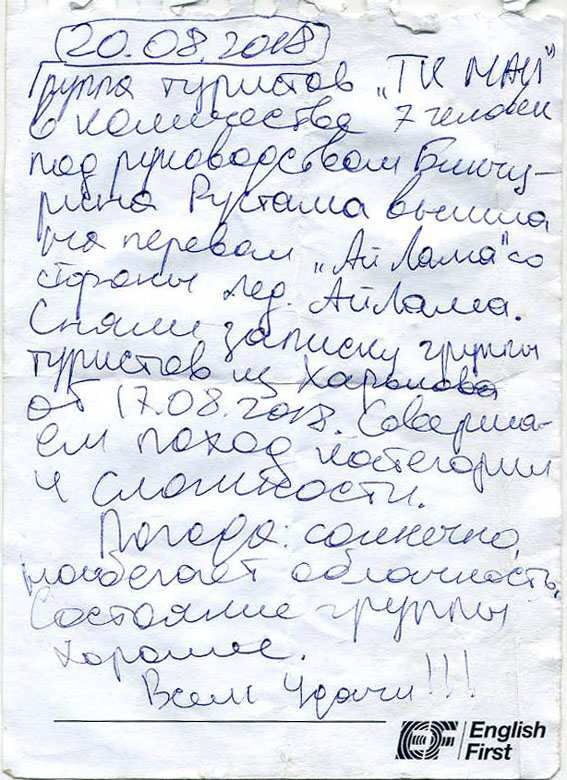 20.08.2018
Группа туристов „ТК МАИ"
в количестве 7 человек
под руководством
Рустама вышла
на перевал „Ай Лама" со
стороны лед. АйЛама.
Сняли записку группы
туристов из Харькова
от 17.08.2018. Соверша-
ем поход категории
4 сложности.
Погода: солнечно,
набегает облачность.
Состояние группы
хорошее.
Всем Удачи!!!
EF English
First